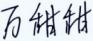 万甜甜